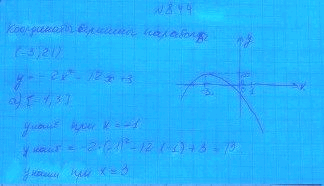 №844
Координаты вершины параболы
(-3; 21)
y = -2x² - 12x + 3
а) [-1; 3]
y наиб при x = -1
y наиб = -2·(-1)² - 12·(-1) + 3 = 13
y наим при x = 3
y
x
-3
0 1